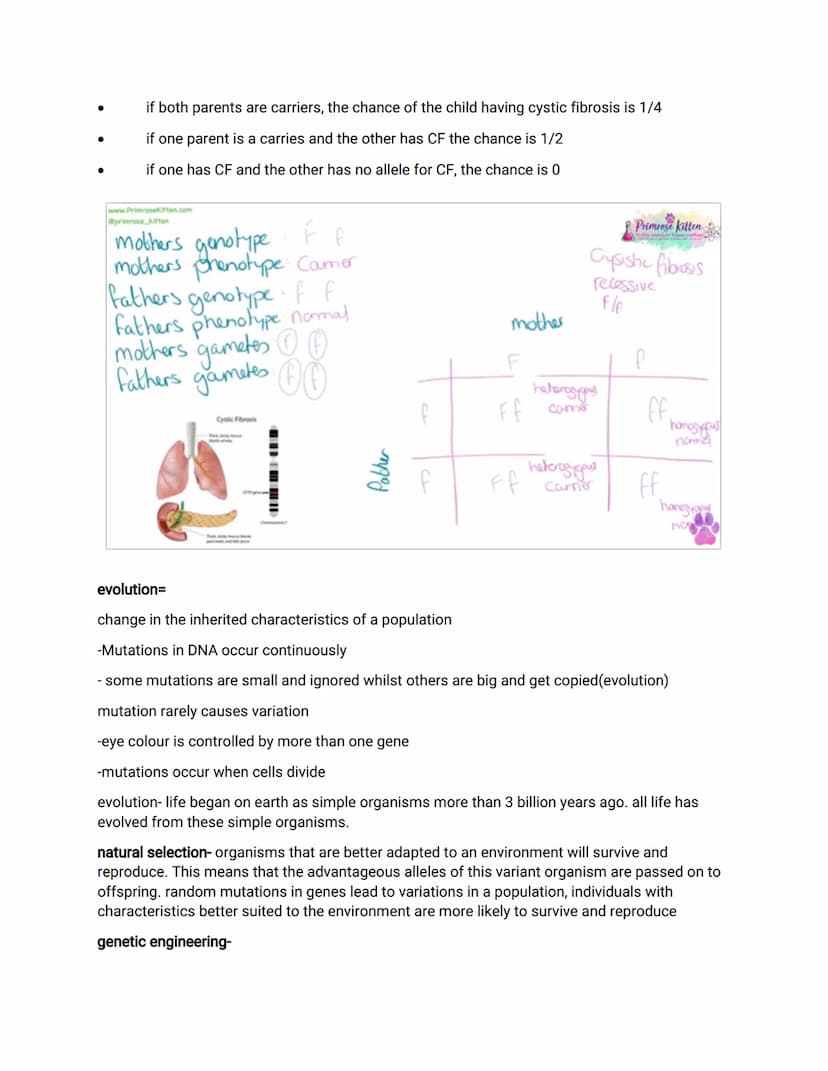 • if both parents are carriers, the chance of the child having cystic fibrosis is 1/4
• if one parent is a carries and the other has CF the chance is 1/2
• if one has CF and the other has no allele for CF, the chance is 0
www.PrimroseKitten.com
@primrose_kitten
Primrose Kitten
mothers genotype: F f
mothers phenotype: Carrier
fathers genotype: f f
fathers phenotype: normal
mothers gametes
fathers gametes f f
Cysistic fibrosis
recessive
F/f
mother
F f
f Ff heterozygous carrier ff homozygous normal
father
f Ff heterozygous carrier ff homozygous
Cystic Fibrosis
Thick, sticky mucus
blocks airway
CFTR gene
Chromosome 7
Thick, sticky mucus blocks
pancreatic and bile ducts
evolution=
change in the inherited characteristics of a population
-Mutations in DNA occur continuously
- some mutations are small and ignored whilst others are big and get copied(evolution)
mutation rarely causes variation
-eye colour is controlled by more than one gene
-mutations occur when cells divide
evolution- life began on earth as simple organisms more than 3 billion years ago. all life has
evolved from these simple organisms.
natural selection- organisms that are better adapted to an environment will survive and
reproduce. This means that the advantageous alleles of this variant organism are passed on to
offspring. random mutations in genes lead to variations in a population, individuals with
characteristics better suited to the environment are more likely to survive and reproduce
genetic engineering-